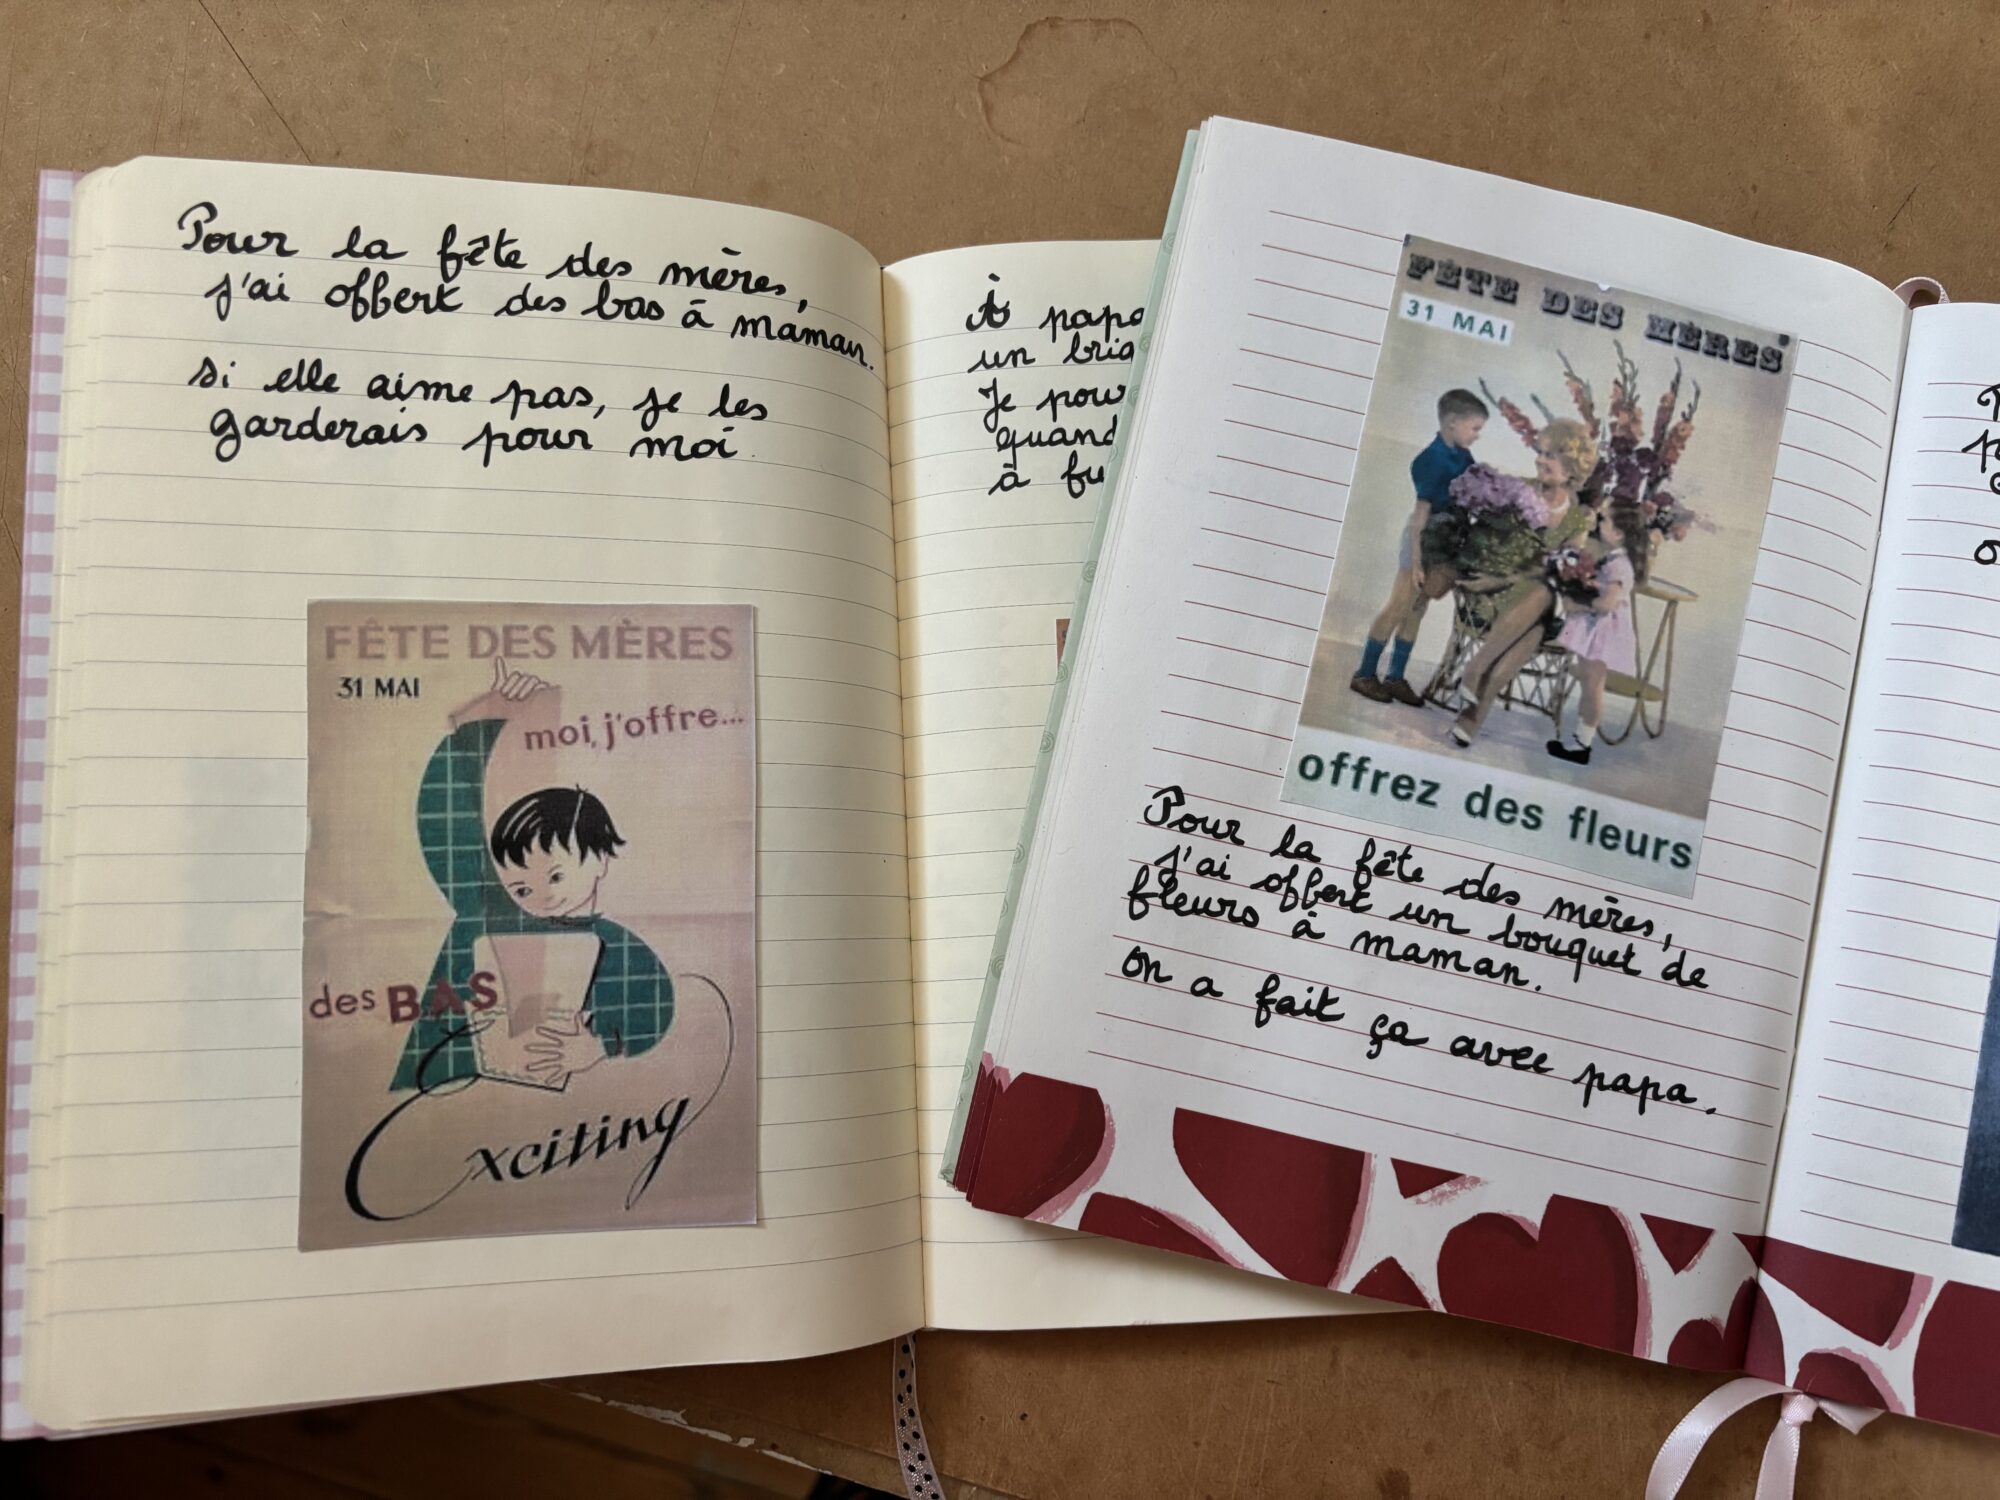 Pour la fête des mères,
j'ai offert des bas à maman.
si elle aime pas, je les
garderais pour moi.
FÊTE DES MÈRES
31 MAI
moi, j'offre...
des BAS
Exciting
À
un
Je
quand
à
FÊTE DES MÈRES
31 MAI
offrez des fleurs
Pour la fête des mères,
j'ai offert un bouquet de
fleurs à maman.
on a fait ça avec papa.